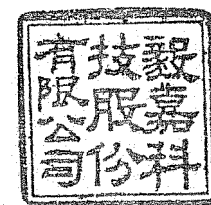 毅嘉科
技股份
有限公司